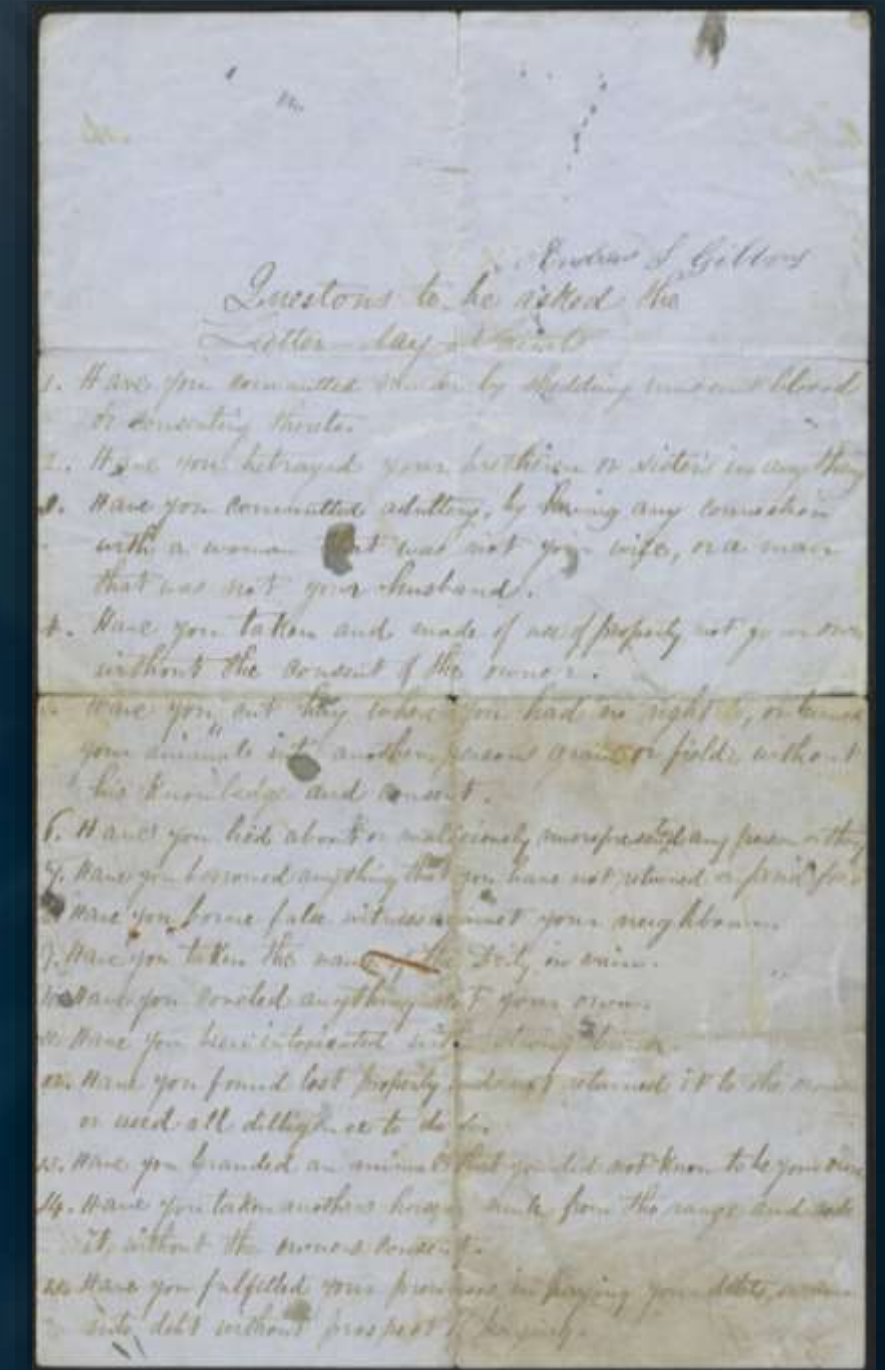 Andrew S Gibbons
Questons to be asked the
Latter day Saints
1. Have you committed murder by shedding innocent blood
or consenting thereto.
2. Have you betrayed your bretheren or sisters in anything
3. Have you committed adultery, by having any connection
with a woman that was not your wife, or a man
that was not your husband.
4. Have you taken and made of use of property not your own
without the consent of the owner.
Have you cut hay where you had no right to, or turned
your animals into another persons grain or field, without
his knowledge and consent.
6. Have you lied about or maliciously misrepresented any person or thing
7. Have you borrowed anything that you have not returned or paid for
Have you borne false witness against your neighbour.
9. Have you taken the name of the Deity in vain.
Have you coveted anything not your own.
Have you been intoxicated with strong drink.
12. Have you found lost property and not returned it to the owner
or used all dilligence to do so.
13. Have you branded an animal that you did not know to be your own
14. Have you taken anothers horse or mule from the range and rode
it, without the owners consent.
15. Have you fulfilled your promises in paying your debts, or run
into debt without prospect of paying.